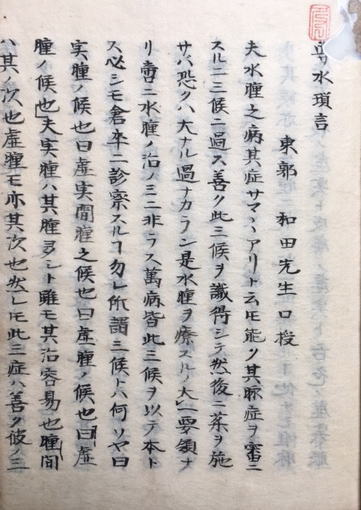 導水瑣言
東郭 和田先生口授
夫水腫之病其症サマ〻アリト云𪜈能ク其脉症ヲ審ニ
スルニ三候ニ過ス善ク此三候ヲ識得シテ然後ニ薬ヲ施
サハ恐クハ大ナル過ナカラン是水腫ヲ療スルノ大要領ナ
リ啻ニ水腫ノ治ノミニ非ラス萬病皆此三候ヲ以テ本ト
ス必シモ倉卒ニ診察スルヿ勿レ所謂三候トハ何ソヤ曰
実腫ノ候也曰虚実間腫之候也曰虚腫ノ候也曰虚
腫ノ候也夫実腫ハ其腫多シト雖モ其治容易也腫間
ハ其ノ次也虚腫モ亦其次也然レ𪜈此三症ハ善ク彼ノ三